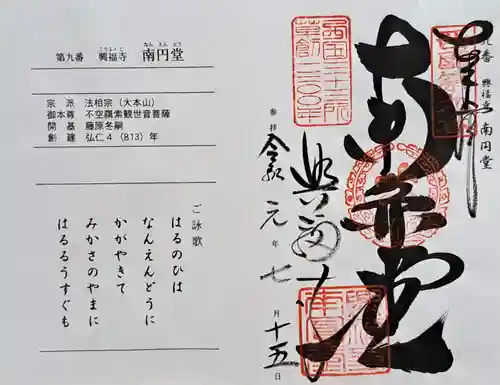 こうふくじ なんえんどう
第九番 興福寺 南円堂
宗派 法相宗（大本山）
御本尊 不空羂索観世音菩薩
開基 藤原冬嗣
創建 弘仁4（813）年
ご詠歌
はるのひは
なんえんどうに
かがやきて
みかさのやまに
はるるうすぐも
九番 興福寺 南円堂
奉拝
南円堂
西国三十三所
草創一三〇〇年
興福寺
参拝 令和元年七月十五日